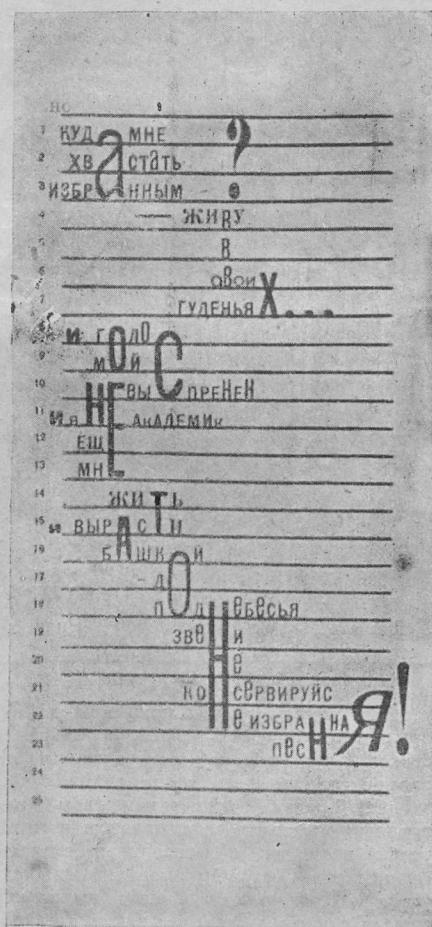 НО
1 КУДА МНЕ
2 ХВАСТАТЬ ?
3 ИЗБРАННЫМ
4 — ЖИВУ
5 В
6 СВОИХ
7 ГУДЕНЬЯХ...
8 И ГОЛОС
9 МОЙ
10 НЕ ВЫСПРЕНЕН
11 И Я НЕ АКАДЕМИК
12 ЕЩЕ
13 МНЕ
14 ЖИТЬ
15 И ВЫРАСТИ
16 БАШКОЙ
17 ДО
18 ПОДНЕБЕСЬЯ
19 ЗВЕНИ
20 НЕ
21 КОНСЕРВИРУЙС
22 НЕИЗБРАННАЯ
23 ПЕСНЯ!
24
25